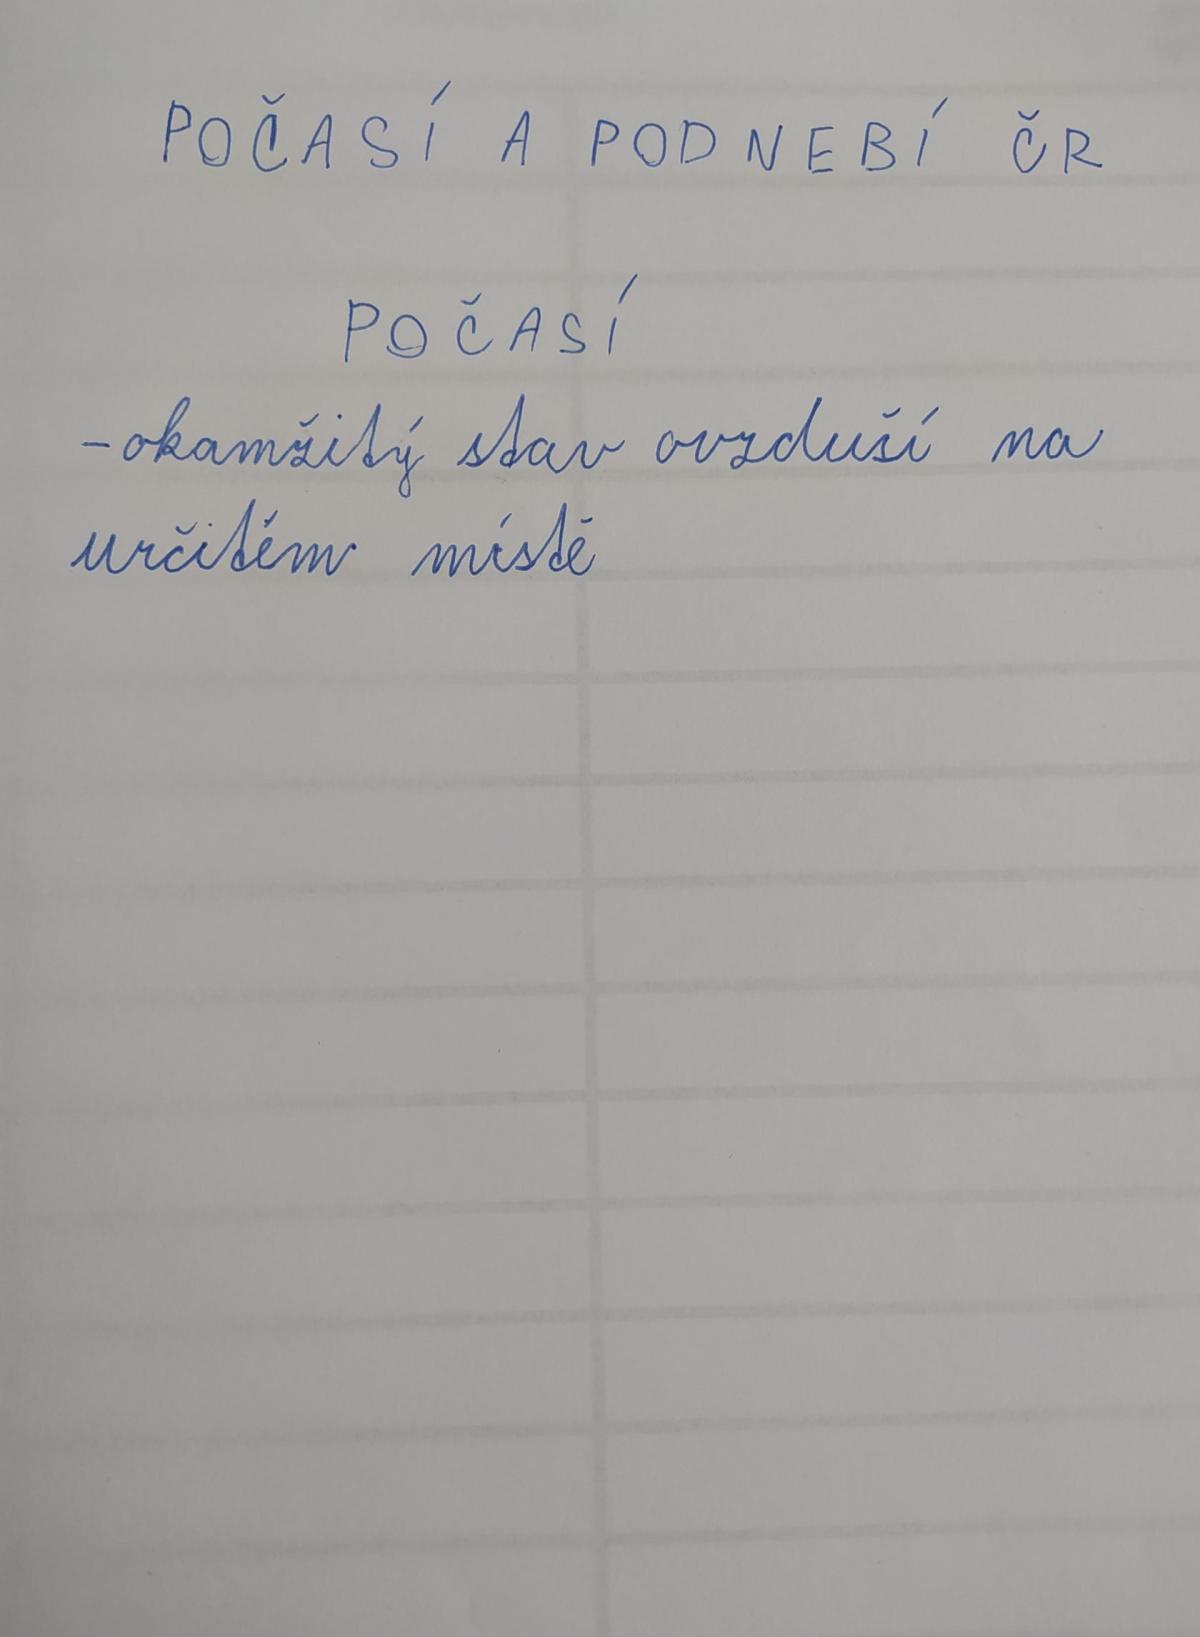 POČASÍ A PODNEBÍ ČR
POČASÍ
-okamžitý stav ovzduší na
určitém místě